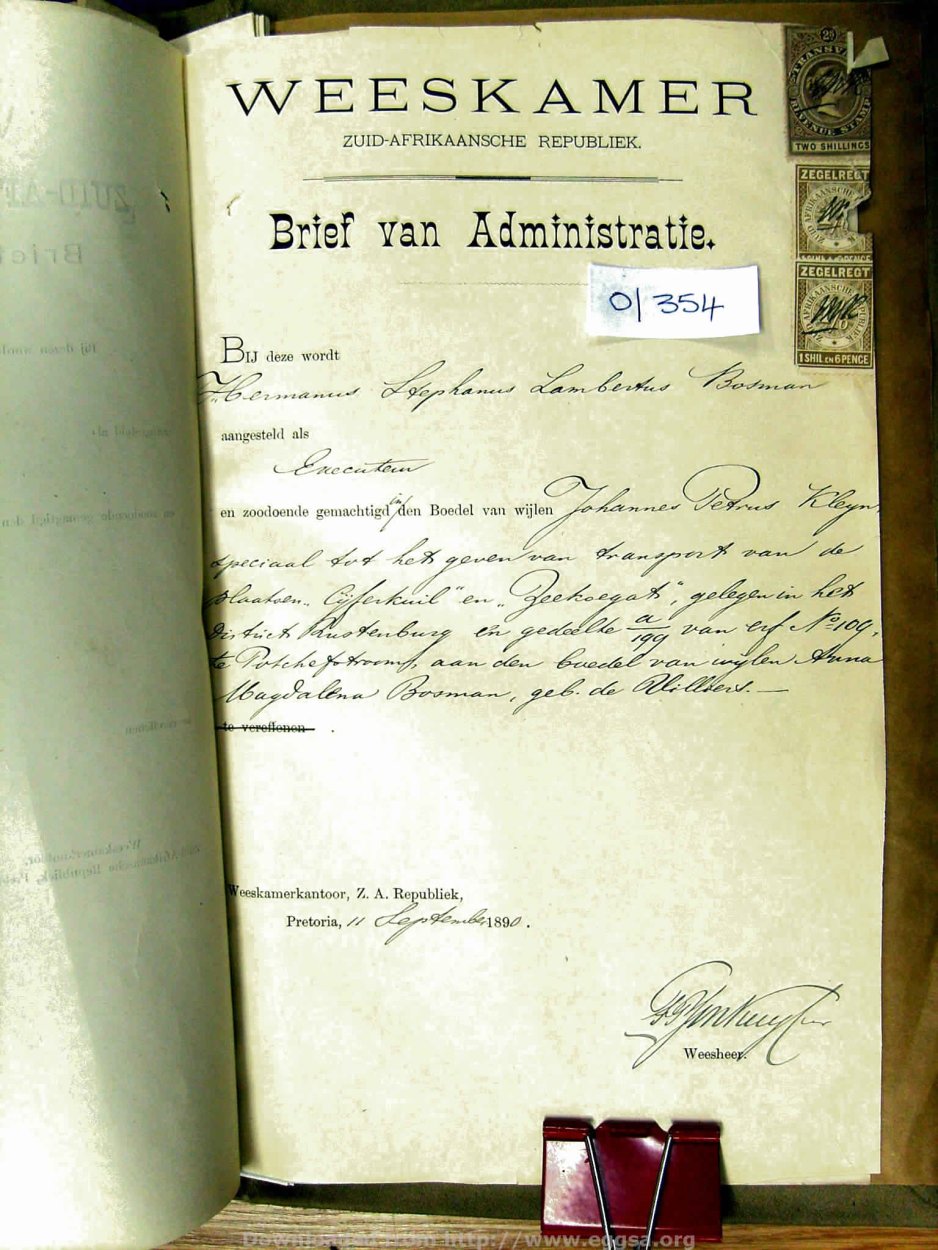 WEESKAMER
ZUID-AFRIKAANSCHE REPUBLIEK.
Brief van Administratie.
TRANSVAAL
REVENUE STAMP
TWO SHILLINGS
ZEGELREGT
ZEGELREGT
1 SHIL EN 6 PENCE
0/354
BIJ deze wordt
Hermanus Stephanus Lambertus Bosman
aangesteld als
Executeur
en zoodoende gemachtigd in den Boedel van wijlen Johannes Petrus Kleyn
speciaal tot het geven van transport van de
plaatsen "Cijferkuil" en "Zeekoegat", gelegen in het
district Rustenburg en gedeelte a/199 van erf No 109,
te Potchefstroom, aan den boedel van wijlen Anna
Magdalena Bosman, geb. de Villiers. —
te vereffenen
Weeskamerkantoor, Z. A. Republiek,
Pretoria, 11 September 1890.
Weesheer.
Downloaded from http://www.eggsa.org